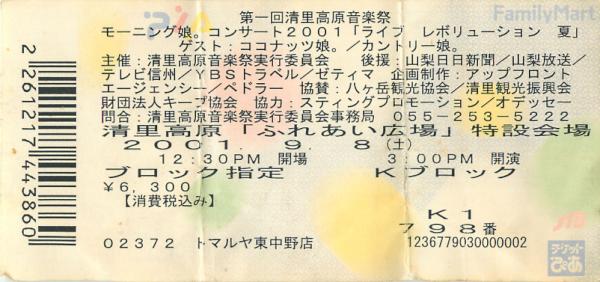 FamilyMart
第一回清里高原音楽祭
モーニング娘。コンサート2001「ライブ レボリューション 夏」
ゲスト:ココナッツ娘。/カントリー娘。
主催:清里高原音楽祭実行委員会 後援:山梨日日新聞/山梨放送/
テレビ信州/YBSトラベル/ゼティマ 企画制作:アップフロント
エージェンシー/ペドラー 協賛:八ヶ岳観光協会/清里観光振興会
財団法人キープ協会 協力:スティングプロモーション/オデッセー
問合:清里高原音楽祭実行委員会事務局 055-253-5222
清里高原「ふれあい広場」特設会場
2001. 9. 8(土)
12:30PM 開場 3:00PM 開演
ブロック指定 Kブロック
¥6,300
【消費税込み】
K1
798番
02372 トマルヤ東中野店 1236779030000002
2261217443860
JTB
チケットぴあ